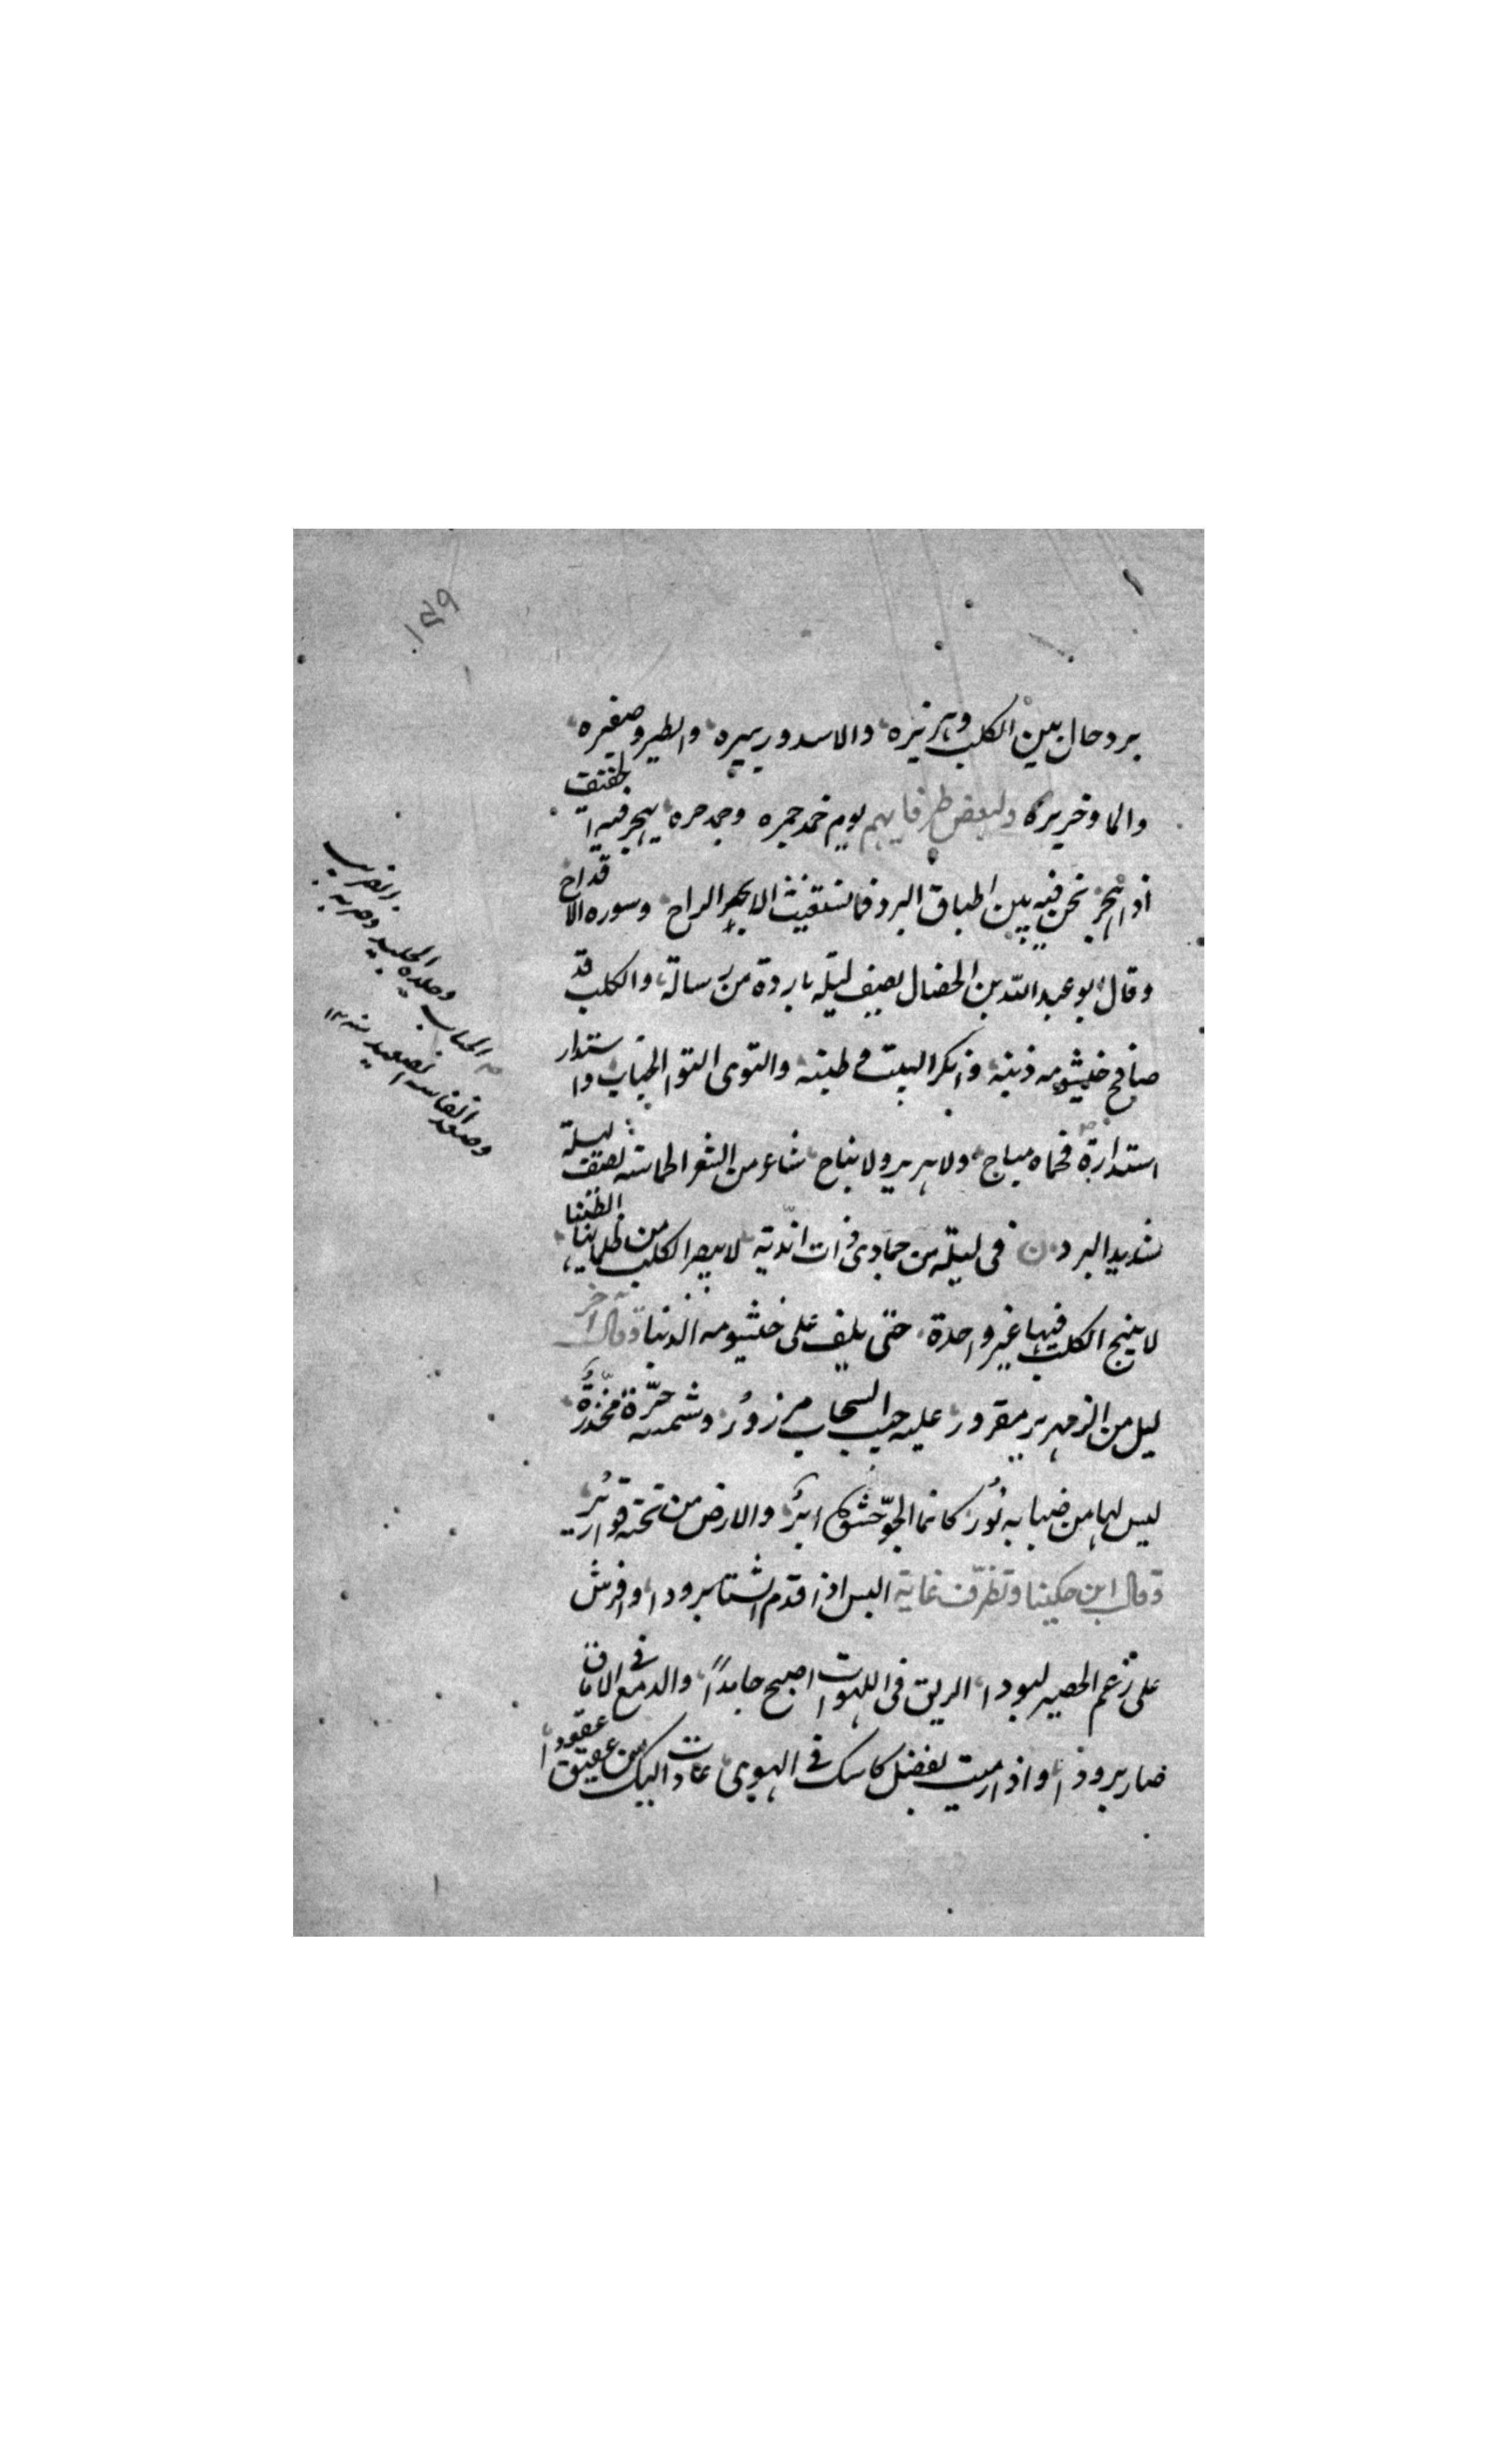 ١٥٩
برد حال بين الكلب وهريره والاسد وزييره والطير وصفيره
والما وخريره ولبعض طرفايهم يوم خمد جمره وجمد حره يهجر فيه
اذا هجر نحن فيه بين اطباق البرد فما نستغيث الا بحر الراح وسوره الاقداح
وقال ابو عبد الله بن الخصال يصف ليلة باردة من رسالة والكلب قد
صافح خيشومه ذنبه وانكر البيت وطنبه والتوى التوا الحباب واستدار
استدارة فحماه مباح ولا هرير ولا نباح شاعر من الشعر الحماسه يصف ليلة
شديد البرد في ليلة من جمادى ذات اندية لا يبصر الكلب من ظلمائها الطنبا
لا ينبح الكلب فيها غير واحدة حتى يلف على خيشومه الذنبا وقال آخر
ليل من الزمهرير مقرور عليه جيب السحاب مزرور وشمسه حرة مخدرة
ليس لها من ضبابه نور كانما الجو حشوه ابر والارض من تحته قوارير
وقال ابن حكينا وتظرف غاية البس اذا قدم الشتا برودا وافرش
على رغم الحصير لبودا الريق في اللهوات اصبح جامدا والدمع في الاماق
صار برودا واذا رميت بفضل كاسك في الهوى عادت اليك من عقيق عقودا